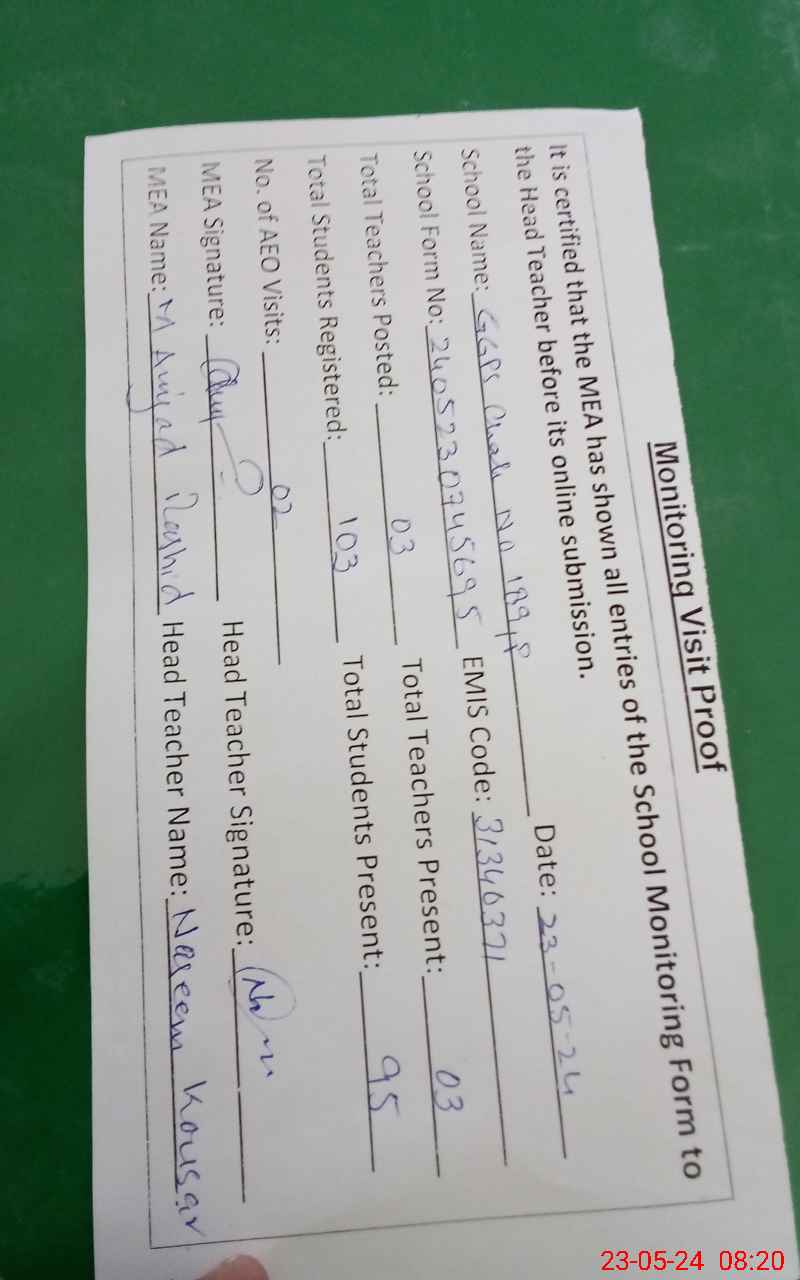 Monitoring Visit Proof
It is certified that the MEA has shown all entries of the School Monitoring Form to
the Head Teacher before its online submission.
School Name: GGPS Chak No Date: 23-05-24
School Form No: 2405230745695 EMIS Code: 31340371
Total Teachers Posted: 03 Total Teachers Present: 03
Total Students Registered: 103 Total Students Present: 95
No. of AEO Visits: 02
MEA Signature: Head Teacher Signature:
MEA Name: M Amjad Rashid Head Teacher Name: Naseem Kousar
23-05-24 08:20